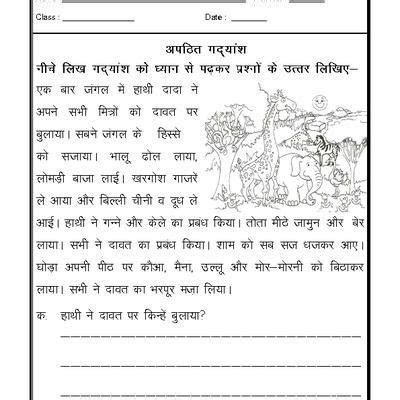 Class : Date :
अपठित गद्यांश
नीचे लिख गद्यांश को ध्यान से पढ़कर प्रश्नों के उत्तर लिखिए–
एक बार जंगल में हाथी दादा ने
अपने सभी मित्रों को दावत पर
बुलाया। सबने जंगल के हिस्से
को सजाया। भालू ढोल लाया,
लोमड़ी बाजा लाई। खरगोश गाजरें
ले आया और बिल्ली चीनी व दूध ले
आई। हाथी ने गन्ने और केले का प्रबंध किया। तोता मीठे जामुन और बेर
लाया। सभी ने दावत का प्रबंध किया। शाम को सब सज धजकर आए।
घोड़ा अपनी पीठ पर कौआ, मैना, उल्लू और मोर–मोरनी को बिठाकर
लाया। सभी ने दावत का भरपूर मज़ा लिया।
क. हाथी ने दावत पर किन्हें बुलाया?